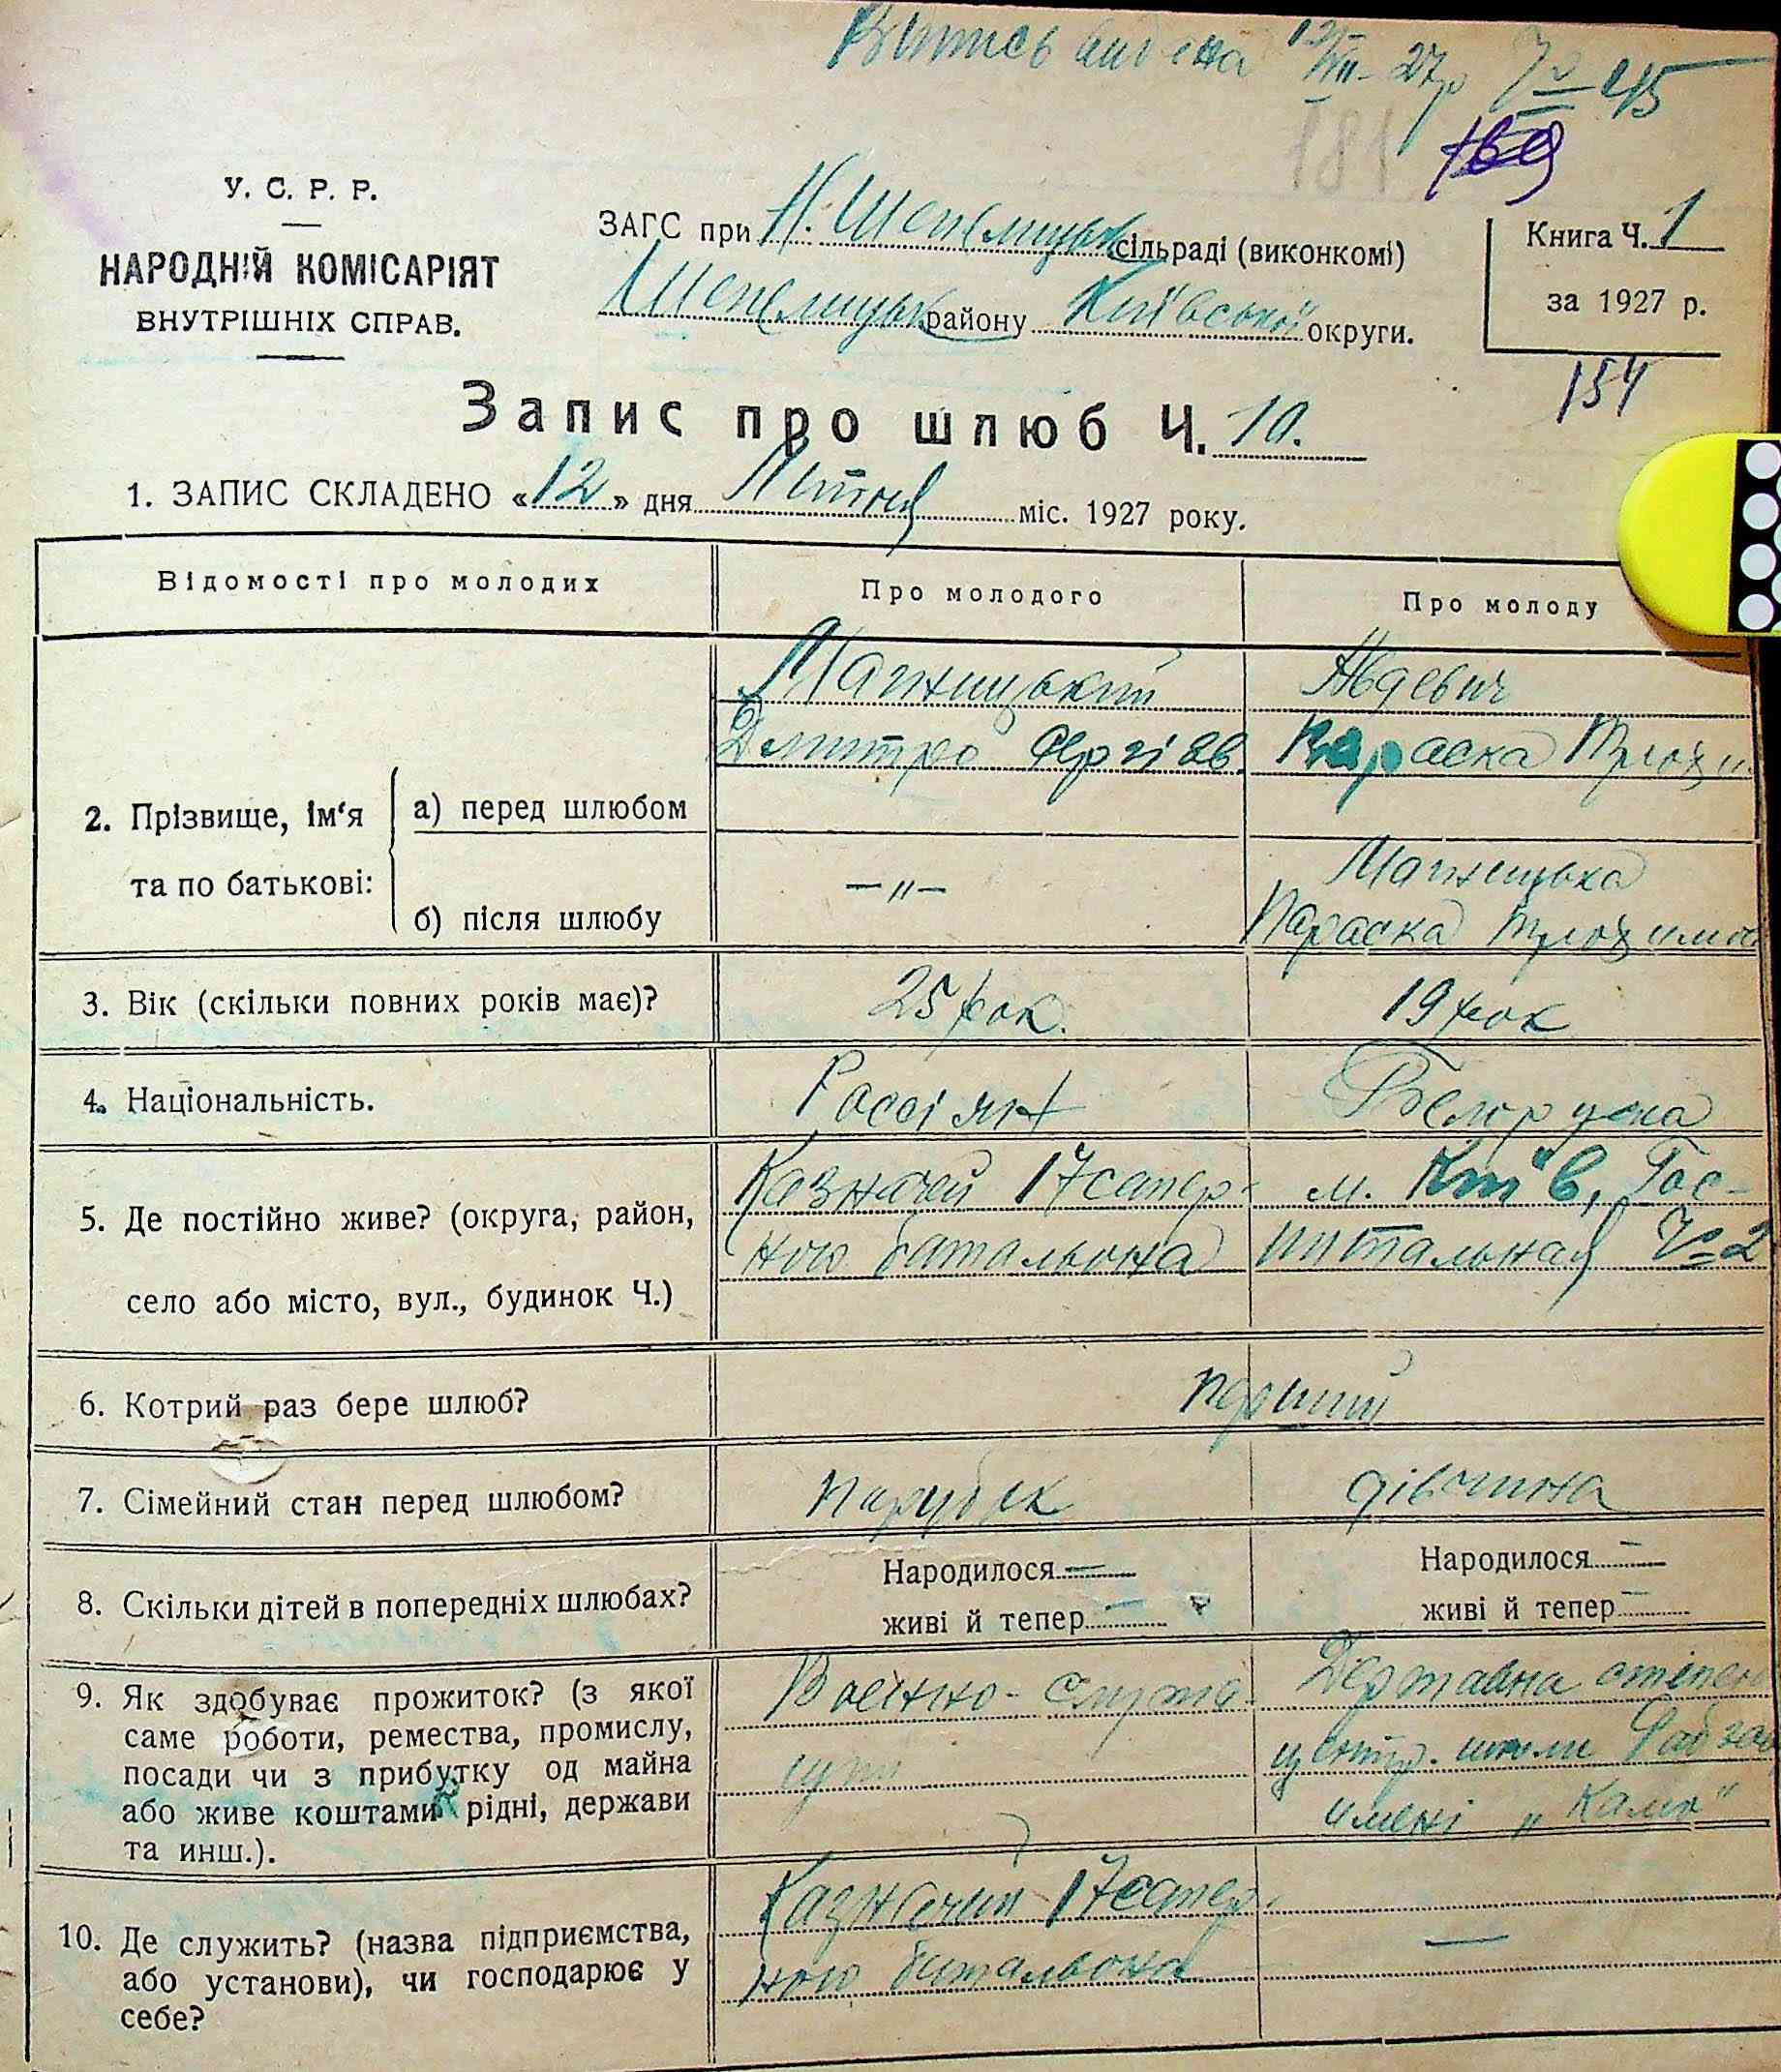 Витись видена 12/VII-27р № 45
181
169
У. С. Р. Р.
НАРОДНІЙ КОМІСАРІЯТ
ВНУТРІШНІХ СПРАВ.
ЗАГС при Н. Шепелицьк сільраді (виконкомі)
Шепелицьк району Київської округи.
Книга Ч. 1
за 1927 р.
154
Запис про шлюб Ч. 10.
1. ЗАПИС СКЛАДЕНО «12» дня Литня міс. 1927 року.
Відомості про молодих
Про молодого
Про молоду
2. Прізвище, ім'я та по батькові:
а) перед шлюбом
Дмитро Сергієв
Авдевич
Параска Трохи
б) після шлюбу
—"—
Параска Трохимов
3. Вік (скільки повних років має)?
25 рок.
19 рок
4. Національність.
Россіян
Белоруска
5. Де постійно живе? (округа, район,
село або місто, вул., будинок Ч.)
Казначей 17 сапер-
ного батальона
м. Київ, Гос-
питальная № 2
6. Котрий раз бере шлюб?
перший
7. Сімейний стан перед шлюбом?
парубок
дівчина
8. Скільки дітей в попередніх шлюбах?
Народилося —
живі й тепер —
Народилося —
живі й тепер —
9. Як здобуває прожиток? (з якої
саме роботи, ремества, промислу,
посади чи з прибутку од майна
або живе коштами рідні, держави
та инш.).
Воєнно-служа-
щий
Державна степен
центр. школи Фабзав
имені "
10. Де служить? (назва підприємства,
або установи), чи господарює у
себе?
Казначий 17 сапер.
ного батальона
—